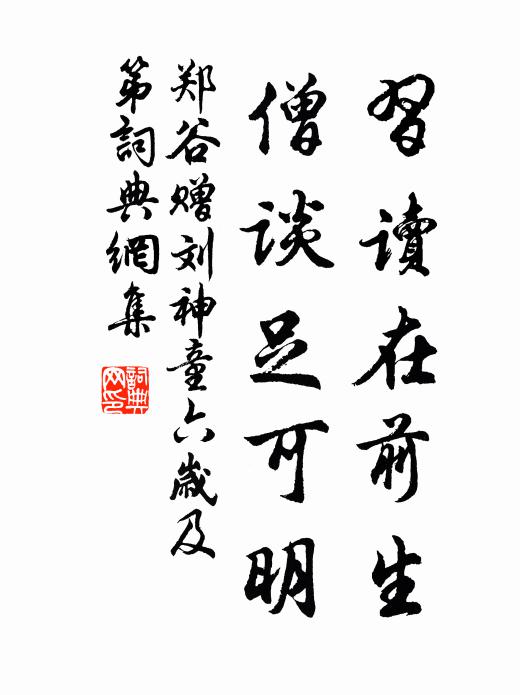 習讀在前生
僧談足可明
郑谷赠刘神童六歲及
第詞典網集
詞典
网印